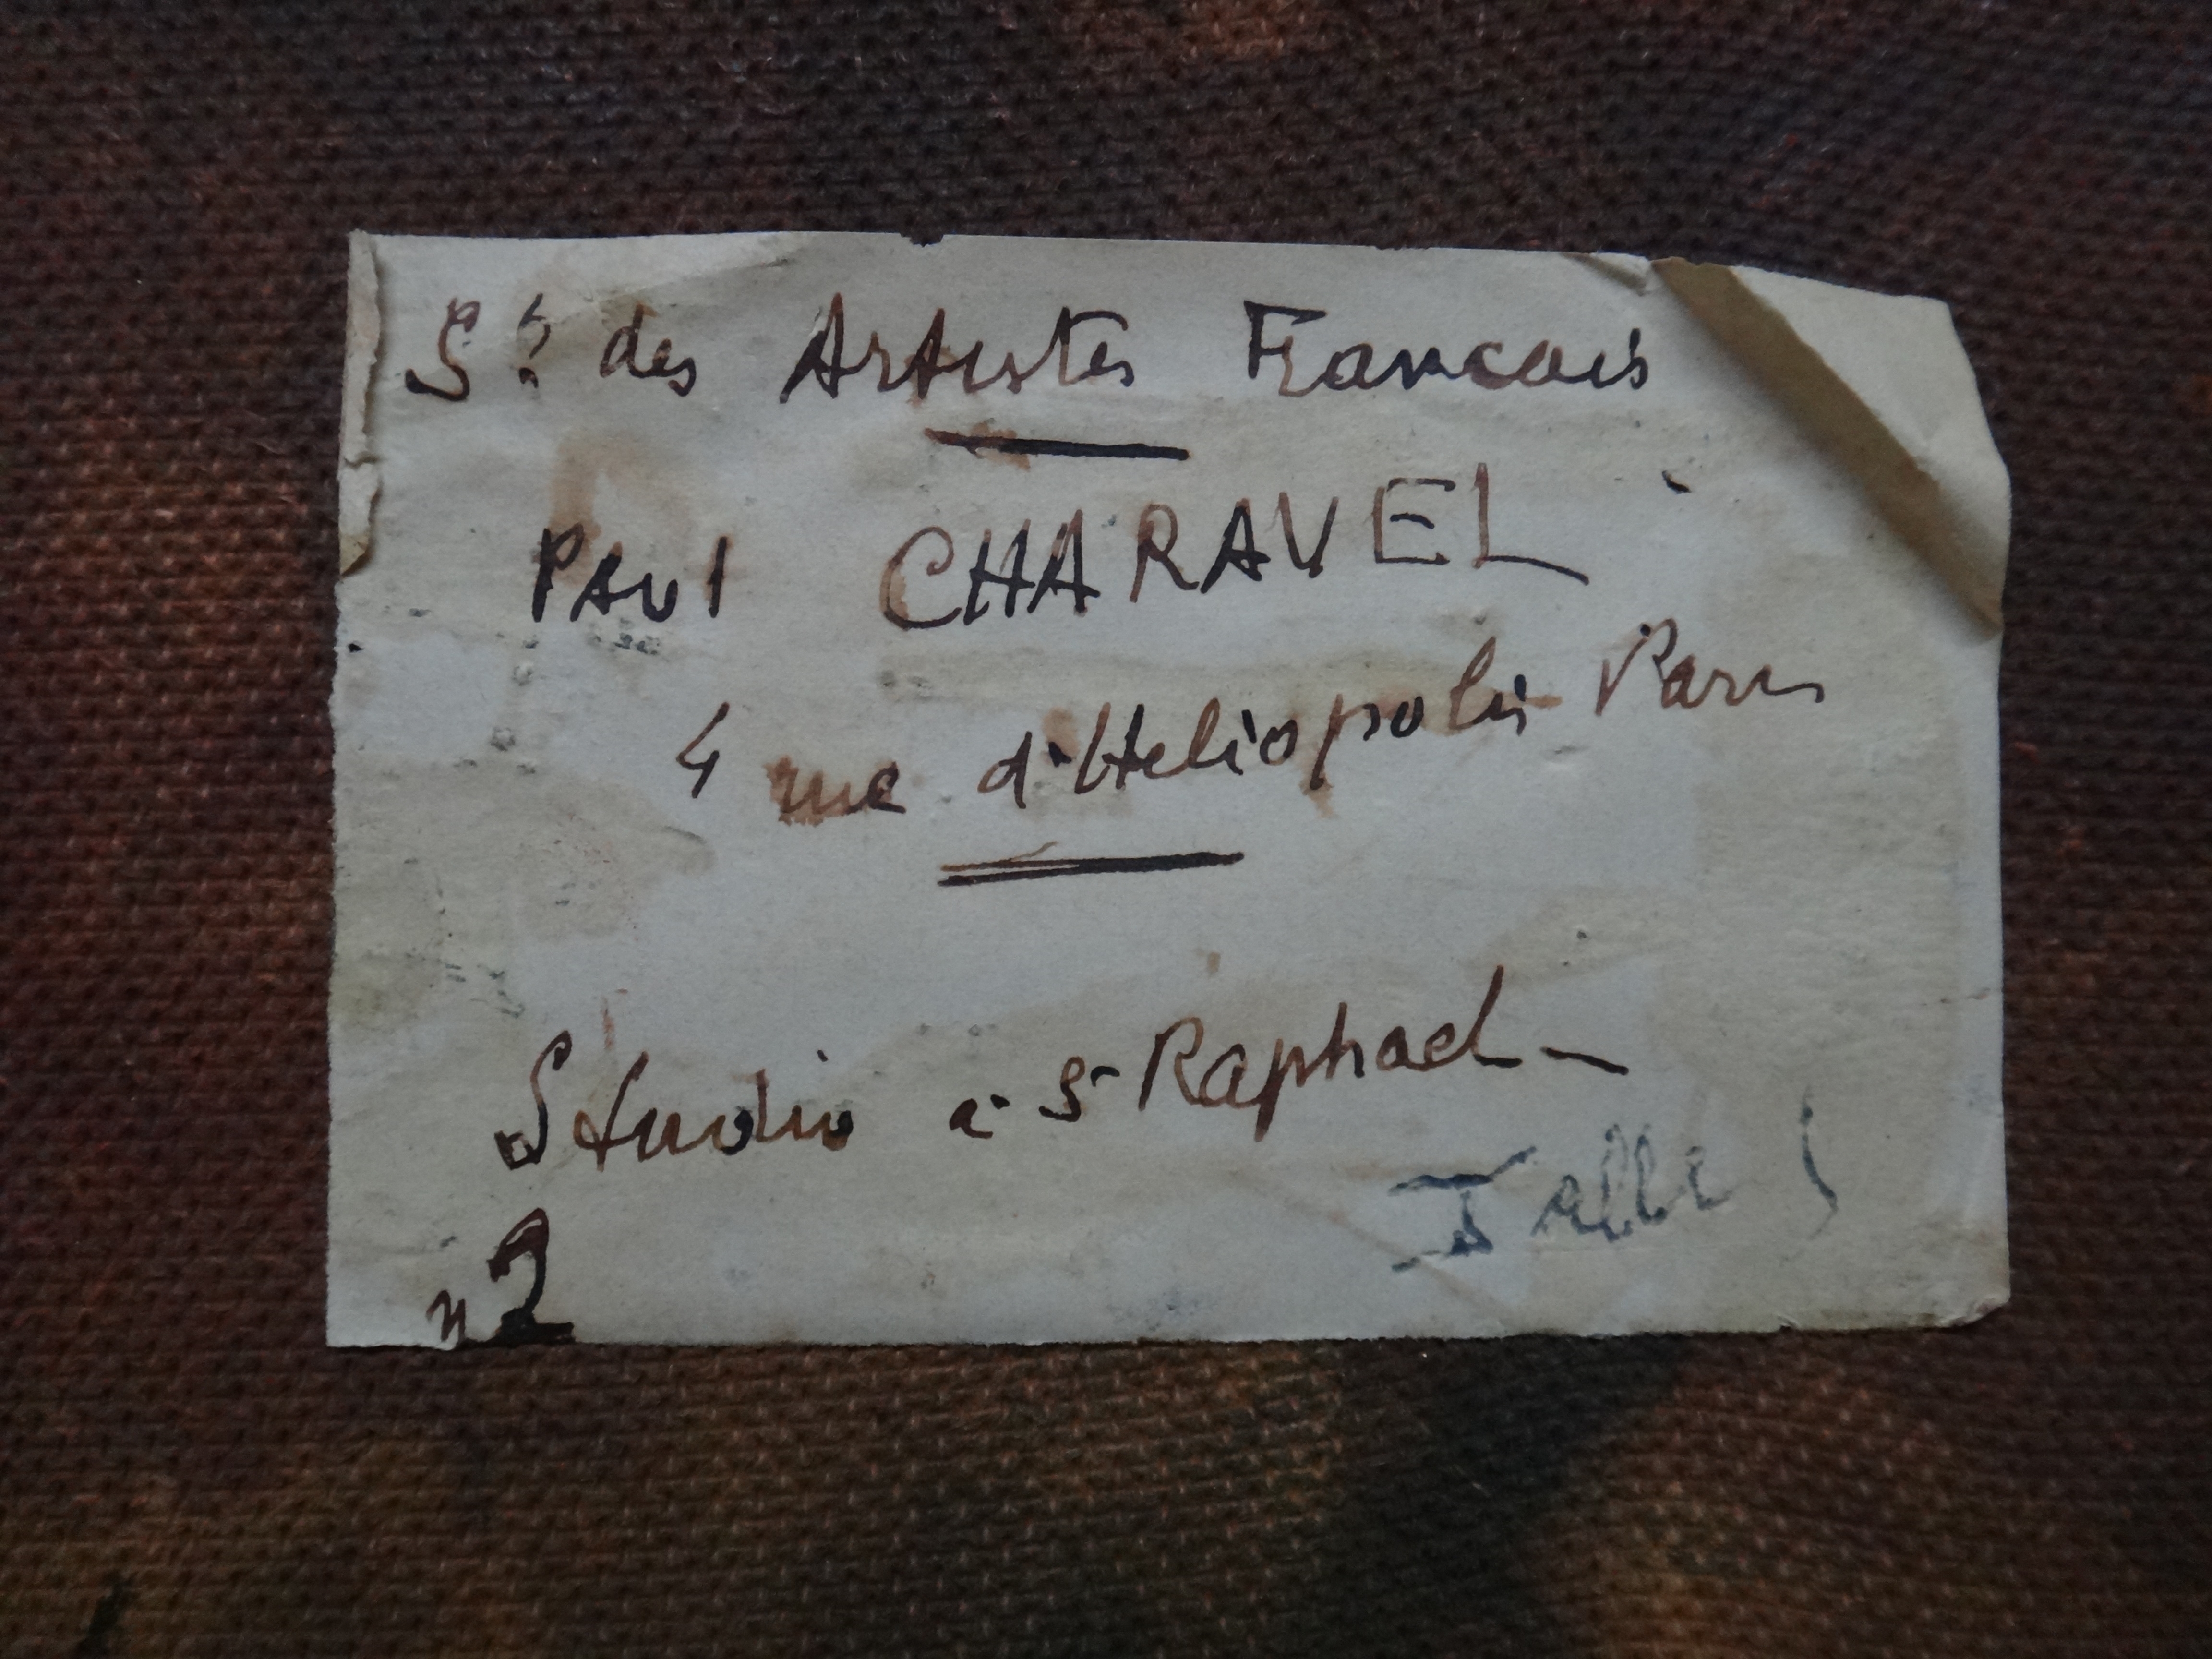 Sté des Artistes Francais
Paul CHARAVEL
4 rue d'Heliopolis Paris
Studio à St Raphael
n 2